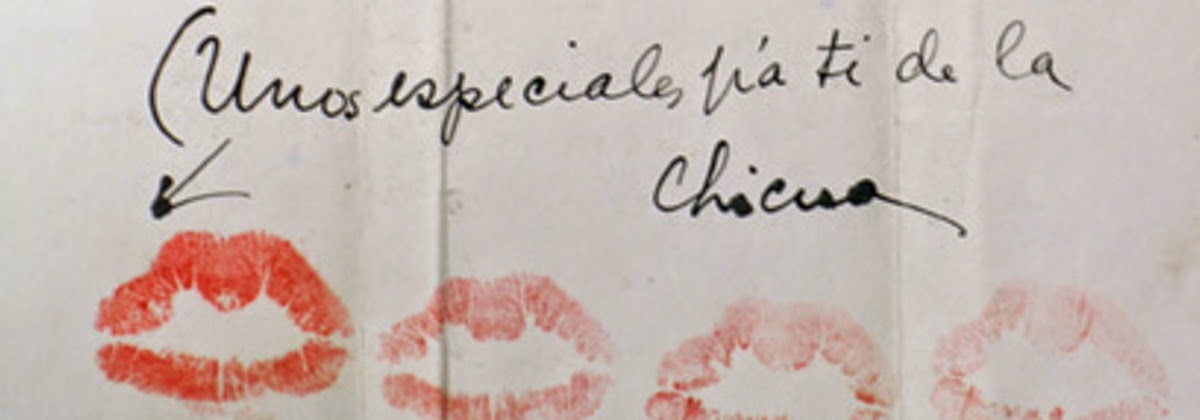 (Unos especiales p'a ti de la
Chicua